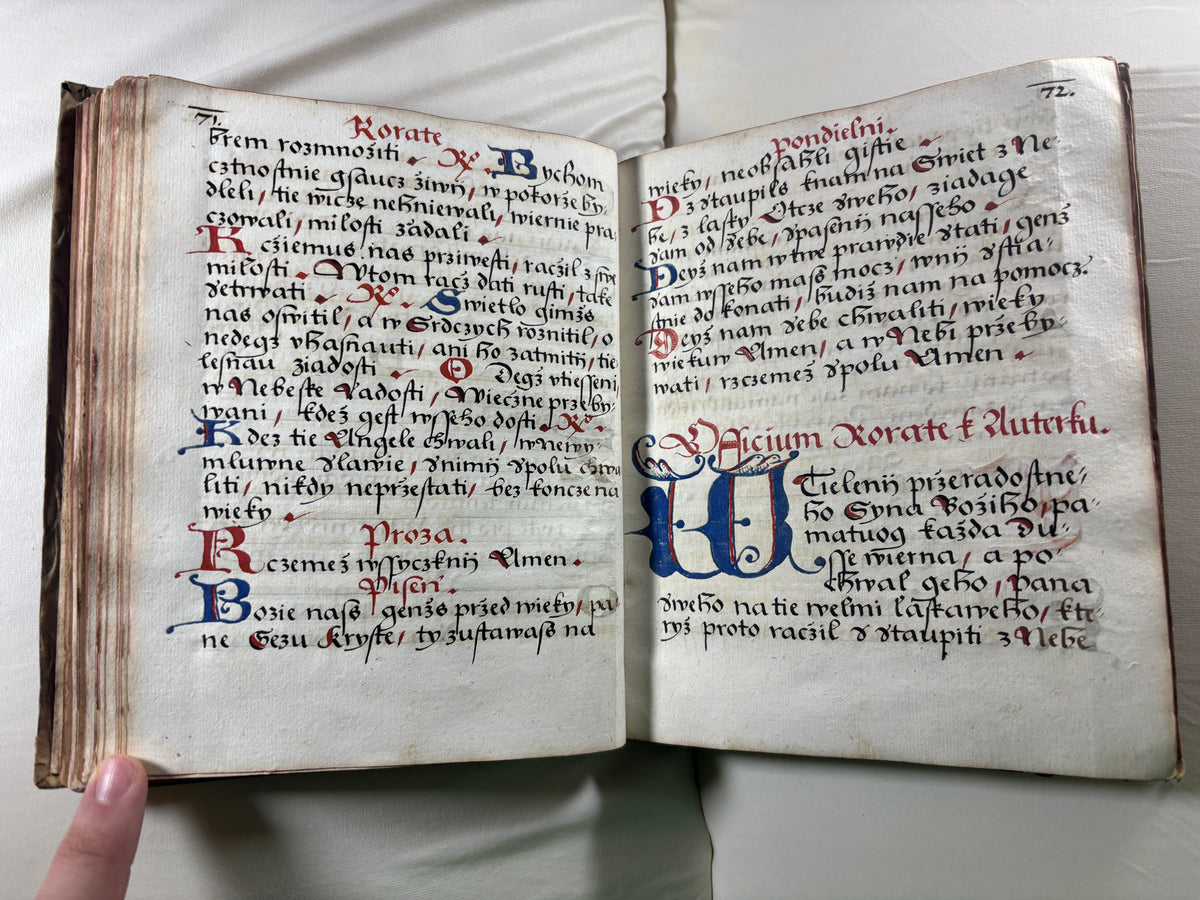 71.
Rorate
krem rozmnožiti. ℟. Bychom
cztnostnie gsaucz žiwij, w pokorže by-
dleli, tie wieze nehniewali, wiernie pra-
czowali, milosti žádali.
K cžiemus nas prziwesti, racžil z swe
milosti. A w tom racž dati rusti, take
setrwati. ℟. Swietlo gimžs
nas oswitil, a w Srdczych roznitil, o
nedegž vhasnauti, ani ho zatmiti, tie-
lesnau žiadosti. O Degž vtiesseni,
w Nebeske Radosti, Wiecžne przeby-
wani, kdež gest wsseho dosti. ℟.
Kdež tie Angele chwali, w newy-
mluwne slawie, s nimij spolu chwa
liti, nikdy neprzestati, bez koncze na
wieky.
Proza.
Rczemež wssyczknij Amen.
Pisen.
Bozie nass genžs przed wieky, pa-
ne Gezu Kryste, ty zustawass na
72.
Pondielni.
wieky, neobsahli gistie.
Z staupils k nam na Swiet z Ne-
be, z lasky Otcze sweho, ziadage
sam od sebe, spasenij nasseho.
Deyž nam w twe prawdie stati, genž
sam wsseho mass mocz, w nij sstia-
stnie dokonati, budiž nam na pomocz.
Deyž nam sebe chwaliti, wieky
wiekuw Amen, a w Nebi przeby-
wati, rzczemež spolu Amen.
Officium Rorate k Auterku.
W Tielenij przeradostne-
ho Syna Božiho, pa-
matuog každa du-
sse wierna, a po-
chwal geho, Pana
sweho na tie welmi laskaweho, kte-
ryž proto racžil s staupiti z Nebe